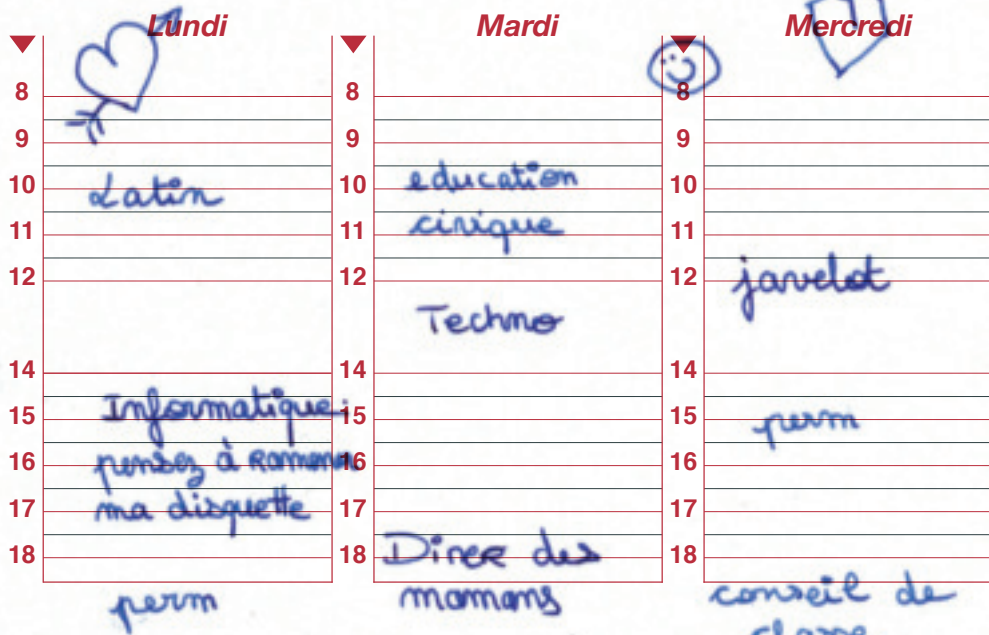 Lundi
Mardi
Mercredi
8
9
10
11
12
14
15
16
17
18
Latin
Informatique:
pensez à Ramener
ma disquette
perm
8
9
10
11
12
14
15
16
17
18
education
civique
Techno
Diner des
mamans
8
9
10
11
12
14
15
16
17
18
javelot
perm
conseil de
classe